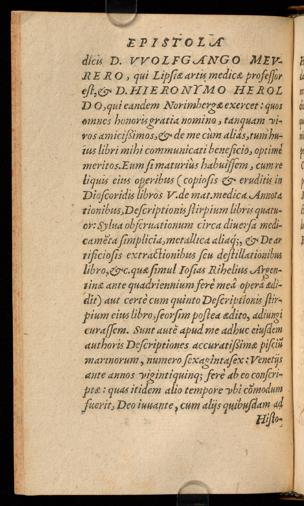 EPISTOLA
dicis D. VVOLFGANGO MEV-
RERO, qui Lipsiæ artis medicæ professor
est, & D. HIERONYMO HEROL
DO, qui eandem Norimbergæ exercet: quos
omnes honoris gratia nomino, tanquam vi-
ros amicissimos, & de me cùm aliàs, tum hu-
ius libri mihi communicati beneficio, optimè
meritos. Eum si maturius habuissem, cum re
liquis eius operibus (copiosis & eruditis in
Dioscoridis libros V. de mat. medica Annota
tionibus, Descriptionis stirpium libris quatu-
or: Sylua obseruationum circa diuersa medi-
camēta simplicia, metallica aliaq;, & De ar
tificiosis extractionibus seu destillationibus
libro, &c. quæ simul Iosias Rihelius Argen-
tinæ ante quadriennium ferè meâ operâ ædi-
dit) aut certè cum quinto Descriptionis stir-
pium eius libro, seorsim postea ædito, adiungi
curassem. Sunt autē apud me adhuc eiusdem
authoris Descriptiones accuratissimæ pisciū
marinorum, numero sexagintasex: Venetijs
ante annos vigintiquinq; ferè ab eo conscri-
ptæ: quas itidem alio tempore vbi cōmodum
fuerit, Deo iuuante, cum alijs quibusdam ad
Histo-